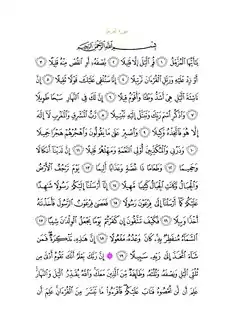 سورة المزمل
بِسْمِ اللَّهِ الرَّحْمَٰنِ الرَّحِيمِ
يَا أَيُّهَا الْمُزَّمِّلُ ١ قُمِ اللَّيْلَ إِلَّا قَلِيلًا ٢ نِصْفَهُ أَوِ انْقُصْ مِنْهُ قَلِيلًا ٣
أَوْ زِدْ عَلَيْهِ وَرَتِّلِ الْقُرْآنَ تَرْتِيلًا ٤ إِنَّا سَنُلْقِي عَلَيْكَ قَوْلًا ثَقِيلًا ٥ إِنَّ
نَاشِئَةَ اللَّيْلِ هِيَ أَشَدُّ وَطْئًا وَأَقْوَمُ قِيلًا ٦ إِنَّ لَكَ فِي النَّهَارِ سَبْحًا طَوِيلًا
٧ وَاذْكُرِ اسْمَ رَبِّكَ وَتَبَتَّلْ إِلَيْهِ تَبْتِيلًا ٨ رَبُّ الْمَشْرِقِ وَالْمَغْرِبِ لَا إِلَٰهَ
إِلَّا هُوَ فَاتَّخِذْهُ وَكِيلًا ٩ وَاصْبِرْ عَلَىٰ مَا يَقُولُونَ وَاهْجُرْهُمْ هَجْرًا جَمِيلًا
١٠ وَذَرْنِي وَالْمُكَذِّبِينَ أُولِي النَّعْمَةِ وَمَهِّلْهُمْ قَلِيلًا ١١ إِنَّ لَدَيْنَا أَنْكَالًا
وَجَحِيمًا ١٢ وَطَعَامًا ذَا غُصَّةٍ وَعَذَابًا أَلِيمًا ١٣ يَوْمَ تَرْجُفُ الْأَرْضُ
وَالْجِبَالُ وَكَانَتِ الْجِبَالُ كَثِيبًا مَهِيلًا ١٤ إِنَّا أَرْسَلْنَا إِلَيْكُمْ رَسُولًا شَاهِدًا
عَلَيْكُمْ كَمَا أَرْسَلْنَا إِلَىٰ فِرْعَوْنَ رَسُولًا ١٥ فَعَصَىٰ فِرْعَوْنُ الرَّسُولَ فَأَخَذْنَاهُ
أَخْذًا وَبِيلًا ١٦ فَكَيْفَ تَتَّقُونَ إِنْ كَفَرْتُمْ يَوْمًا يَجْعَلُ الْوِلْدَانَ شِيبًا ١٧
السَّمَاءُ مُنْفَطِرٌ بِهِ كَانَ وَعْدُهُ مَفْعُولًا ١٨ إِنَّ هَٰذِهِ تَذْكِرَةٌ فَمَنْ
شَاءَ اتَّخَذَ إِلَىٰ رَبِّهِ سَبِيلًا ١٩ إِنَّ رَبَّكَ يَعْلَمُ أَنَّكَ تَقُومُ أَدْنَىٰ مِنْ
ثُلُثَيِ اللَّيْلِ وَنِصْفَهُ وَثُلُثَهُ وَطَائِفَةٌ مِنَ الَّذِينَ مَعَكَ وَاللَّهُ يُقَدِّرُ اللَّيْلَ وَالنَّهَارَ
عَلِمَ أَنْ لَنْ تُحْصُوهُ فَتَابَ عَلَيْكُمْ فَاقْرَءُوا مَا تَيَسَّرَ مِنَ الْقُرْآنِ عَلِمَ أَنْ